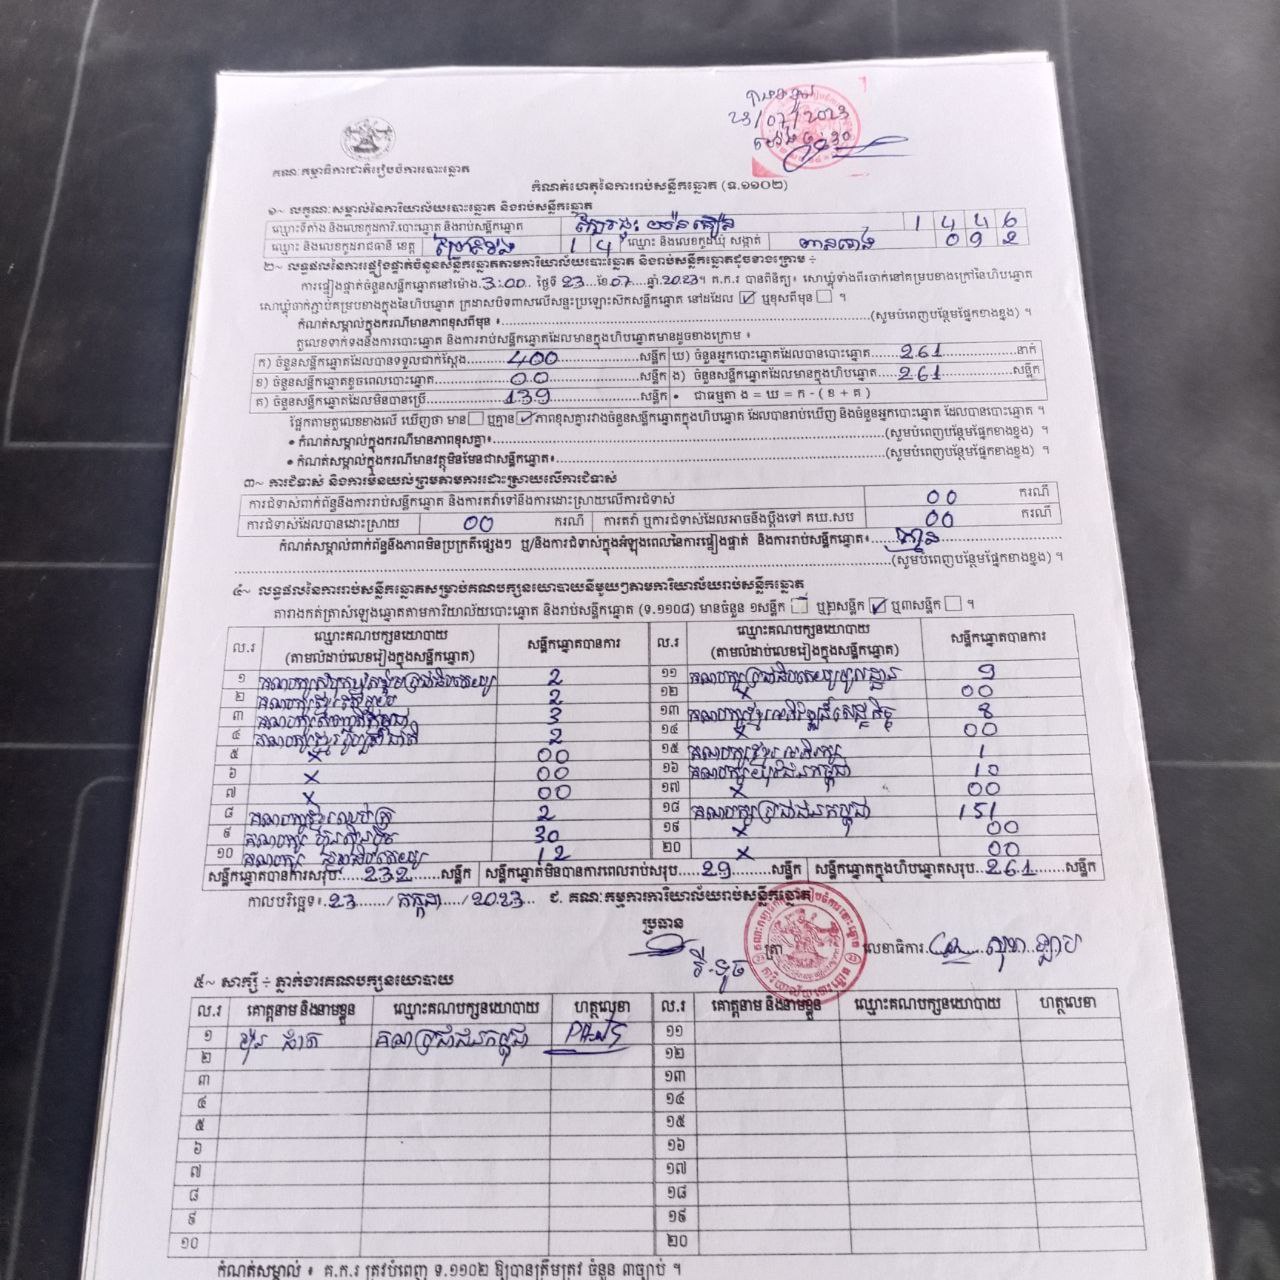 23/07/2023
គណៈកម្មាធិការជាតិរៀបចំការបោះឆ្នោត
កំណត់ហេតុនៃការរាប់សន្លឹកឆ្នោត (ទ.១១០២)
១~ លក្ខណៈសម្គាល់នៃការិយាល័យបោះឆ្នោត និងរាប់សន្លឹកឆ្នោត
ឈ្មោះទីតាំង និងលេខកូដការិ.បោះឆ្នោត និងរាប់សន្លឹកឆ្នោត 1 4 4 6
ឈ្មោះ និងលេខកូដរាជធានី ខេត្ត ព្រៃវែង 1 4 ឈ្មោះ និងលេខកូដឃុំ សង្កាត់ 0 9 2
២~ លទ្ធផលនៃការផ្ទៀងផ្ទាត់ចំនួនសន្លឹកឆ្នោតតាមការិយាល័យបោះឆ្នោត និងរាប់សន្លឹកឆ្នោតដូចខាងក្រោម ÷
ការផ្ទៀងផ្ទាត់ចំនួនសន្លឹកឆ្នោតនៅម៉ោង 3:00 ថ្ងៃទី 23 ខែ 07 ឆ្នាំ 2023។ គ.ក.រ បានពិនិត្យ៖ សោឃ្លុំទាំងពីរចាក់នៅគម្របខាងក្រៅនៃហិបឆ្នោត
សោឃ្លុំចាក់ភ្ជាប់គម្របខាងក្នុងនៃហិបឆ្នោត ក្រដាសបិទពាសលើសន្ទះប្រឡោះសឹកសន្លឹកឆ្នោត នៅដដែល ☑ ឬខុសពីមុន ☐ ។
កំណត់សម្គាល់ក្នុងករណីមានភាពខុសពីមុន ៖ (សូមបំពេញបន្ថែមផ្នែកខាងខ្នង) ។
តួលេខទាក់ទងនឹងការបោះឆ្នោត និងការរាប់សន្លឹកឆ្នោតដែលមានក្នុងហិបឆ្នោតមានដូចខាងក្រោម ៖
ក) ចំនួនសន្លឹកឆ្នោតដែលបានទទួលជាក់ស្តែង 400 សន្លឹក ឃ) ចំនួនអ្នកបោះឆ្នោតដែលបានបោះឆ្នោត 261 នាក់
ខ) ចំនួនសន្លឹកឆ្នោតខូចពេលបោះឆ្នោត 00 សន្លឹក ង) ចំនួនសន្លឹកឆ្នោតដែលមានក្នុងហិបឆ្នោត 261 សន្លឹក
គ) ចំនួនសន្លឹកឆ្នោតដែលមិនបានប្រើ 139 សន្លឹក • ជាធម្មតា ង = ឃ = ក - ( ខ + គ )
ផ្អែកតាមតួលេខខាងលើ ឃើញថា មាន ☐ ឬគ្មាន ☑ ភាពខុសគ្នារវាងចំនួនសន្លឹកឆ្នោតក្នុងហិបឆ្នោត ដែលបានរាប់ឃើញ និងចំនួនអ្នកបោះឆ្នោត ដែលបានបោះឆ្នោត ។
• កំណត់សម្គាល់ក្នុងករណីមានភាពខុសគ្នា៖ (សូមបំពេញបន្ថែមផ្នែកខាងខ្នង) ។
• កំណត់សម្គាល់ក្នុងករណីមានវត្ថុមិនមែនជាសន្លឹកឆ្នោត៖ (សូមបំពេញបន្ថែមផ្នែកខាងខ្នង) ។
៣~ ការជំទាស់ និងការមិនយល់ព្រមតាមការដោះស្រាយលើការជំទាស់
ការជំទាស់ពាក់ព័ន្ធនឹងការរាប់សន្លឹកឆ្នោត និងការតវ៉ាទៅនឹងការដោះស្រាយលើការជំទាស់ 00 ករណី
ការជំទាស់ដែលបានដោះស្រាយ 00 ករណី ការតវ៉ា ឬការជំទាស់ដែលអាចនឹងប្តឹងទៅ គឃ.សប 00 ករណី
កំណត់សម្គាល់ពាក់ព័ន្ធនឹងភាពមិនប្រក្រតីផ្សេងៗ ឬ/និងការជំទាស់ក្នុងអំឡុងពេលនៃការផ្ទៀងផ្ទាត់ និងការរាប់សន្លឹកឆ្នោត៖ គ្មាន
(សូមបំពេញបន្ថែមផ្នែកខាងខ្នង) ។
៤~ លទ្ធផលនៃការរាប់សន្លឹកឆ្នោតសម្រាប់គណបក្សនយោបាយនីមួយៗតាមការិយាល័យរាប់សន្លឹកឆ្នោត
តារាងកត់ត្រាសំឡេងឆ្នោតតាមការិយាល័យបោះឆ្នោត និងរាប់សន្លឹកឆ្នោត (ទ.១១០៨) មានចំនួន ១សន្លឹក ☐ ឬ២សន្លឹក ☑ ឬ៣សន្លឹក ☐ ។
ល.រ ឈ្មោះគណបក្សនយោបាយ (តាមលំដាប់លេខរៀងក្នុងសន្លឹកឆ្នោត) សន្លឹកឆ្នោតបានការ ល.រ ឈ្មោះគណបក្សនយោបាយ (តាមលំដាប់លេខរៀងក្នុងសន្លឹកឆ្នោត) សន្លឹកឆ្នោតបានការ
១ 2 ១១ 9
២ 2 ១២ x 00
៣ 3 ១៣ គណបក្សខ្មែរអភិវឌ្ឍន៍សេដ្ឋកិច្ច 8
៤ គណបក្សខ្មែររួបរួមជាតិ 2 ១៤ x 00
៥ x 00 ១៥ 1
៦ x 00 ១៦ គណបក្សយុវជនកម្ពុជា 10
៧ x 00 ១៧ x 00
៨ គណបក្សខ្មែរឈប់ក្រ 2 ១៨ គណបក្សប្រជាជនកម្ពុជា 151
៩ គណបក្ស ហ្វ៊ុនស៊ិនប៉ិច 30 ១៩ x 00
១០ 12 ២០ x 00
សន្លឹកឆ្នោតបានការសរុប 232 សន្លឹក សន្លឹកឆ្នោតមិនបានការពេលរាប់សរុប 29 សន្លឹក សន្លឹកឆ្នោតក្នុងហិបឆ្នោតសរុប 261 សន្លឹក
កាលបរិច្ឆេទ៖ 23 / កក្កដា / 2023 ជ. គណៈកម្មការការិយាល័យរាប់សន្លឹកឆ្នោត
ប្រធាន
ត្រា លេខាធិការ
៥~ សាក្សី ÷ ភ្នាក់ងារគណបក្សនយោបាយ
ល.រ គោត្តនាម និងនាមខ្លួន ឈ្មោះគណបក្សនយោបាយ ហត្ថលេខា ល.រ គោត្តនាម និងនាមខ្លួន ឈ្មោះគណបក្សនយោបាយ ហត្ថលេខា
១ គណប្រជាជនកម្ពុជា ១១
២ ១២
៣ ១៣
៤ ១៤
៥ ១៥
៦ ១៦
៧ ១៧
៨ ១៨
៩ ១៩
១០ ២០
កំណត់សម្គាល់ ៖ គ.ក.រ ត្រូវបំពេញ ទ.១១០២ ឱ្យបានត្រឹមត្រូវ ចំនួន ៣ច្បាប់ ។